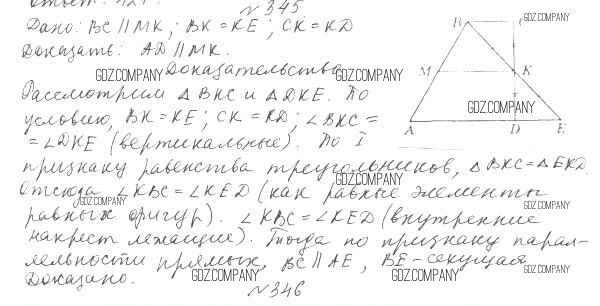 Ответ: 127.
№345
Дано: BC || MK; BK = KE; CK = KD
Доказать: AD || MK.
GDZ.COMPANY Доказательства GDZ.COMPANY
Рассмотрим △ BKC и △ DKE. По
условию, BK = KE; CK = KD, ∠BKC =
= ∠DKE (вертикальные). По I
признаку равенства треугольников, △ BKC = △ EKD.
GDZ.COMPANY
Отсюда ∠KBC = ∠KED (как равные элементы
GDZ.COMPANY GDZ.COMPANY
равных фигур). ∠KBC = ∠KED (внутренние
GDZ.COMPANY
накрест лежащие). Тогда по признаку парал-
лельности прямых, BC || AE, BE - секущая
GDZ.COMPANY GDZ.COMPANY GDZ.COMPANY
Доказано.
№346
B C
M K
GDZ.COMPANY
A D E